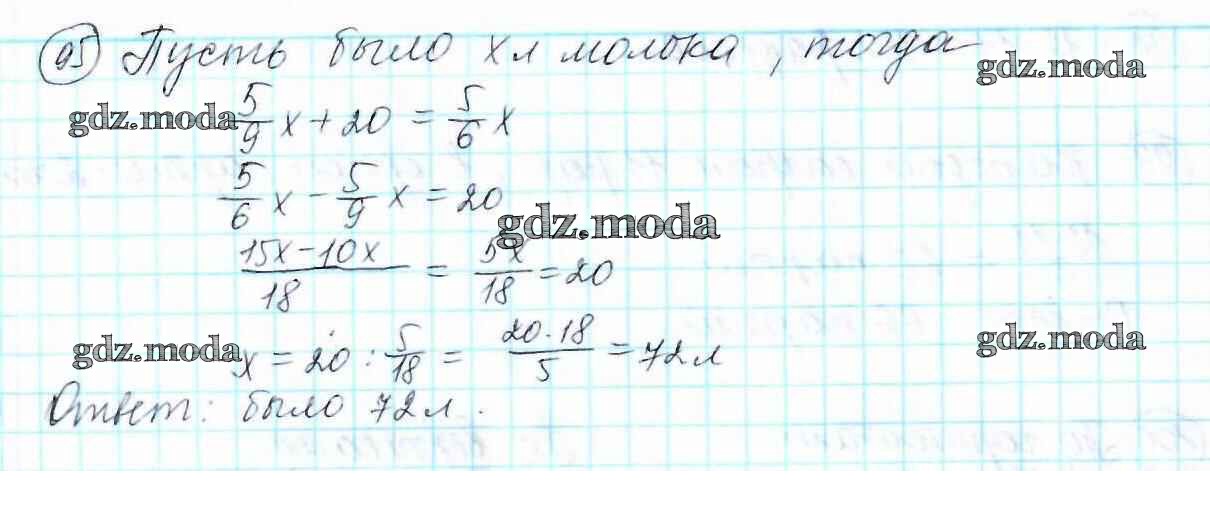 95 Пусть было x л молока, тогда
gdz.moda
gdz.moda
5/9 x + 20 = 5/6 x
5/6 x - 5/9 x = 20
gdz.moda
(15x - 10x)/18 = 5x/18 = 20
gdz.moda
gdz.moda
x = 20 : 5/18 = (20 · 18)/5 = 72 л
Ответ: было 72 л.